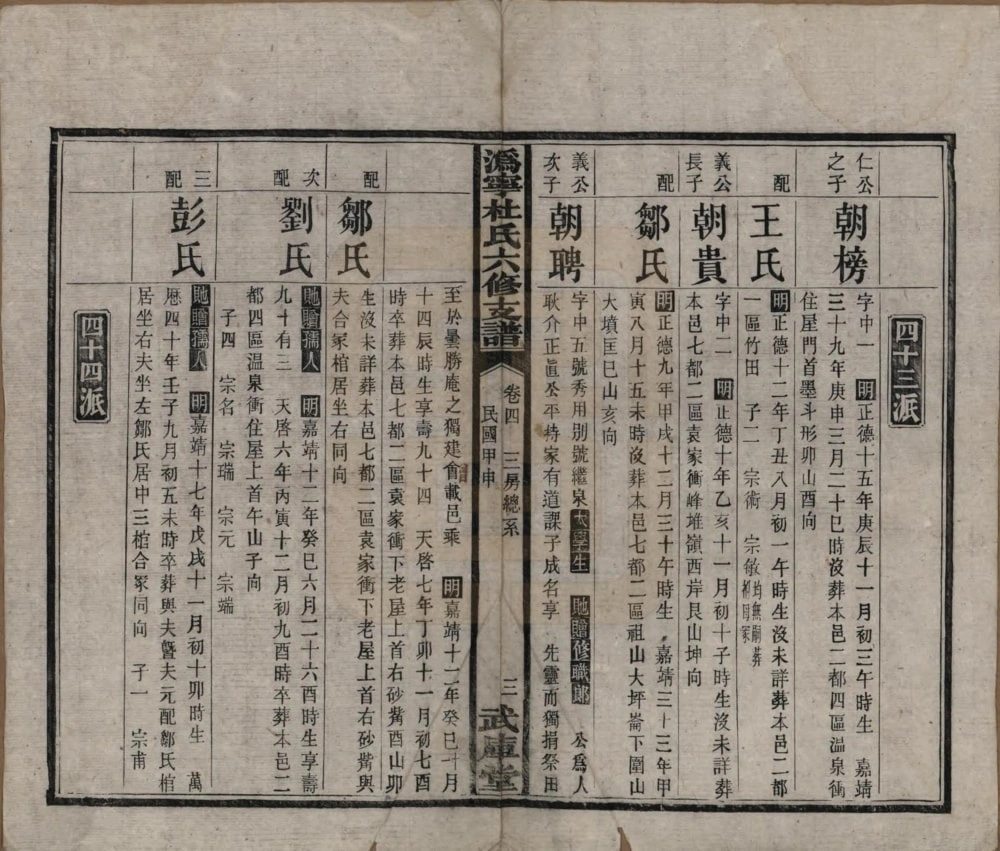 四十三派
仁公之子
朝榜
字中一 明正德十五年庚辰十一月初三午時生 嘉靖
三十九年庚申三月二十巳時沒葬本邑二都四區溫泉衝
住屋門首墨斗形卯山酉向
配
王氏
明正德十二年丁丑八月初一午時生沒未詳葬本邑二都
一區竹田 子二 宗術 宗敏均無嗣葬
義公長子
朝貴
字中二 明正德十年乙亥十一月初十子時生沒未詳葬
本邑七都二區袁家衝峰堆嶺西岸艮山坤向
配
鄒氏
明正德九年甲戌十二月三十午時生 嘉靖三十三年甲
寅八月十五未時沒葬本邑七都二區祖山大坪崙下圍山
大墳匡巳山亥向
義公次子
朝聘
字中五號秀用別號繼泉太學生 貤贈修職郎 公為人
耿介正眞公平持家有道課子成名享 先靈而獨捐祭田
溈寧杜氏六修支譜
卷四 三房總系
民國甲申
三
武庫堂
至於曇勝庵之獨建會載邑乘 明嘉靖十二年癸巳十月
十四辰時生享壽九十四 天啓七年丁卯十一月初七酉
時卒葬本邑七都二區袁家衝下老屋上首右砂觜酉山卯
向
配
鄒氏
生沒未詳葬本邑七都二區袁家衝下老屋上首右砂觜與
夫合冢棺居坐右同向
次配
劉氏
貤贈孺人 明嘉靖十二年癸巳六月二十六酉時生享壽
九十有三 天啓六年丙寅十二月初九酉時卒葬本邑二
都四區溫泉衝住屋上首午山子向
子四 宗名 宗瑞 宗元 宗端
三配
彭氏
貤贈孺人 明嘉靖十七年戊戌十一月初十卯時生 萬
歷四十年壬子九月初五未時卒葬與夫曁夫元配鄒氏棺
居坐右夫坐左鄒氏居中三棺合冢同向 子一 宗甫
四十四派